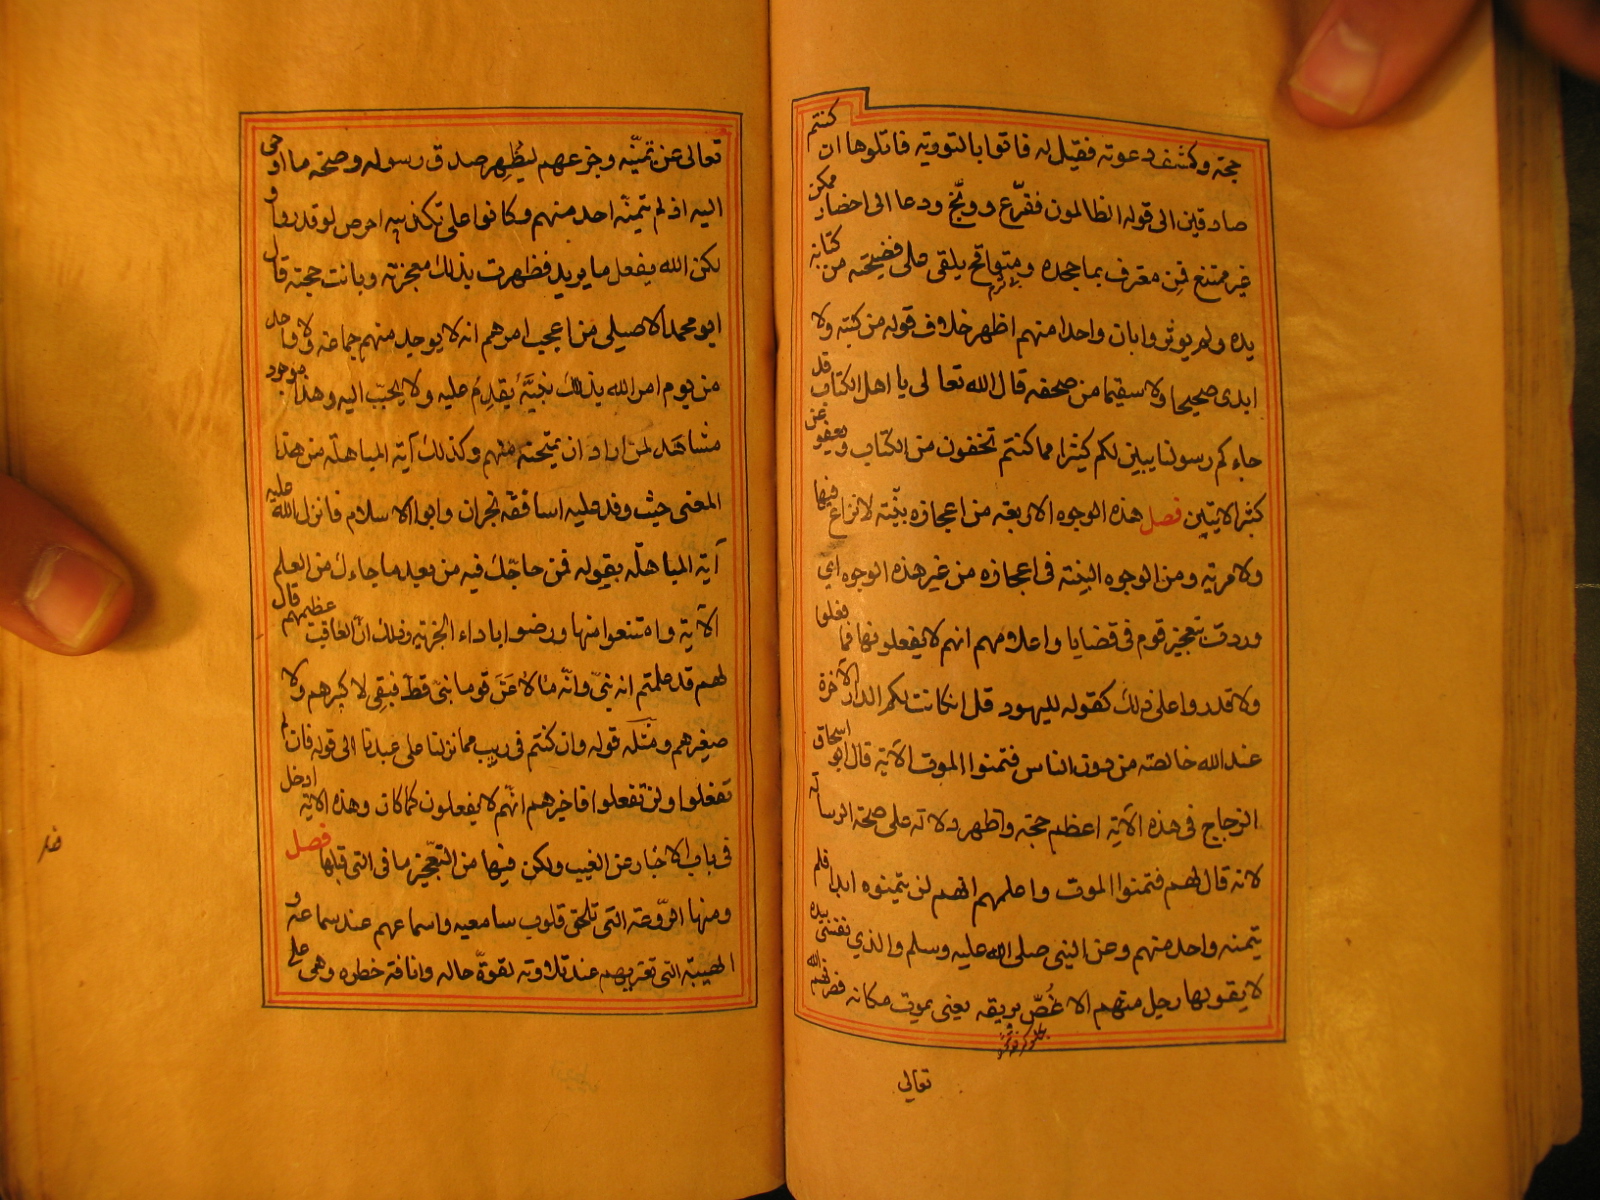 حجته وكشف دعوته فقيل له فاتوا بالتورية فاتلوها ان كنتم
صادقين الى قوله الظالمون فقرّع ووبّخ ودعا الى احضار ممكن
غير ممتنع فمن معترف بما جحده ومتواقح يلقى على فضيحته من كتابه
يده ولم يوثر وابان واحدا منهم اظهر خلاف قوله من كتبه ولا
ابدى صحيحا ولا سقيما من صحفه قال الله تعالى يا اهل الكتاب قد
جاءكم رسولنا يبين لكم كثيرا مما كنتم تخفون من الكتاب ويعفو عن
كثير الايتين فصل هذه الوجوه الاربعه من اعجازه بيّنة لا نزاع فيها
ولا مرية ومن الوجوه البينة في اعجازه من غير هذه الوجوه اي
وردت بتعجيز قوم في قضايا واعلامهم انهم لا يفعلونها فما فعلوا
ولا قدروا على ذلك كقوله لليهود قل ان كانت لكم الدار الآخرة
عند الله خالصة من دون الناس فتمنوا الموت الآية قال ابو اسحاق
الزجاج في هذه الآية اعظم حجة واظهر دلالة على صحة الرسالة
لانه قال لهم فتمنوا الموت واعلمهم انهم لن يتمنوه ابدا فلم
يتمنه واحد منهم وعن النبي صلى الله عليه وسلم والذي نفسي بيده
لا يقولها رجل منهم الا غُصّ بريقه يعني يموت مكانه فصرفهم الله
تعالى
تعالى عن تمنّيه وجزعهم ليُظهر صدق رسوله وصحة ما اوحى
اليه اذ لم يتمنّه احد منهم وكانوا على تكذيبه احرص لو قدروا و
لكن الله يفعل ما يريد فظهرت بذلك معجزته وبانت حجته قال
ابو محمد الاصيلي من اعجب امرهم انه لا يوجد منهم جماعة ولا واحد
من يوم امر الله بذلك نبيَّهُ يقدِمُ عليه ولا يجيب اليه وهذا موجود
مشاهَد لمن اراد ان يمتحنه منهم وكذلك آية المباهلة من هذا
المعنى حيث وفد عليه اساقفة نجران وابوا الاسلام فانزل الله عليه
آية المباهلة بقوله فمن حاجّك فيه من بعد ما جاءك من العلم
الآية وامتنعوا منها ورضوا باداء الجزية وذلك انّ العاقب عظيمهم قال
لهم قد علمتم انه نبيّ وانّه ما لاعَنَ قوما نبيّ قطّ فبقي لا كبيرهم ولا
صغيرهم ومثله قوله وان كنتم في ريب مما نزلنا على عبدنا الى قوله فان لم
تفعلوا ولن تفعلوا فاخبرهم انّهم لا يفعلون كما كان وهذه الآية ادخل
في باب الاخبار عن الغيب ولكن فيها من التعجيز ما في التي قبلها فصل
ومنها الرّوعة التي تلحق قلوب سامعيه واسماعهم عند سماعه و
الهيبة التي تعتريهم عند تلاوته لقوّة حاله وانافة خطره وهي على